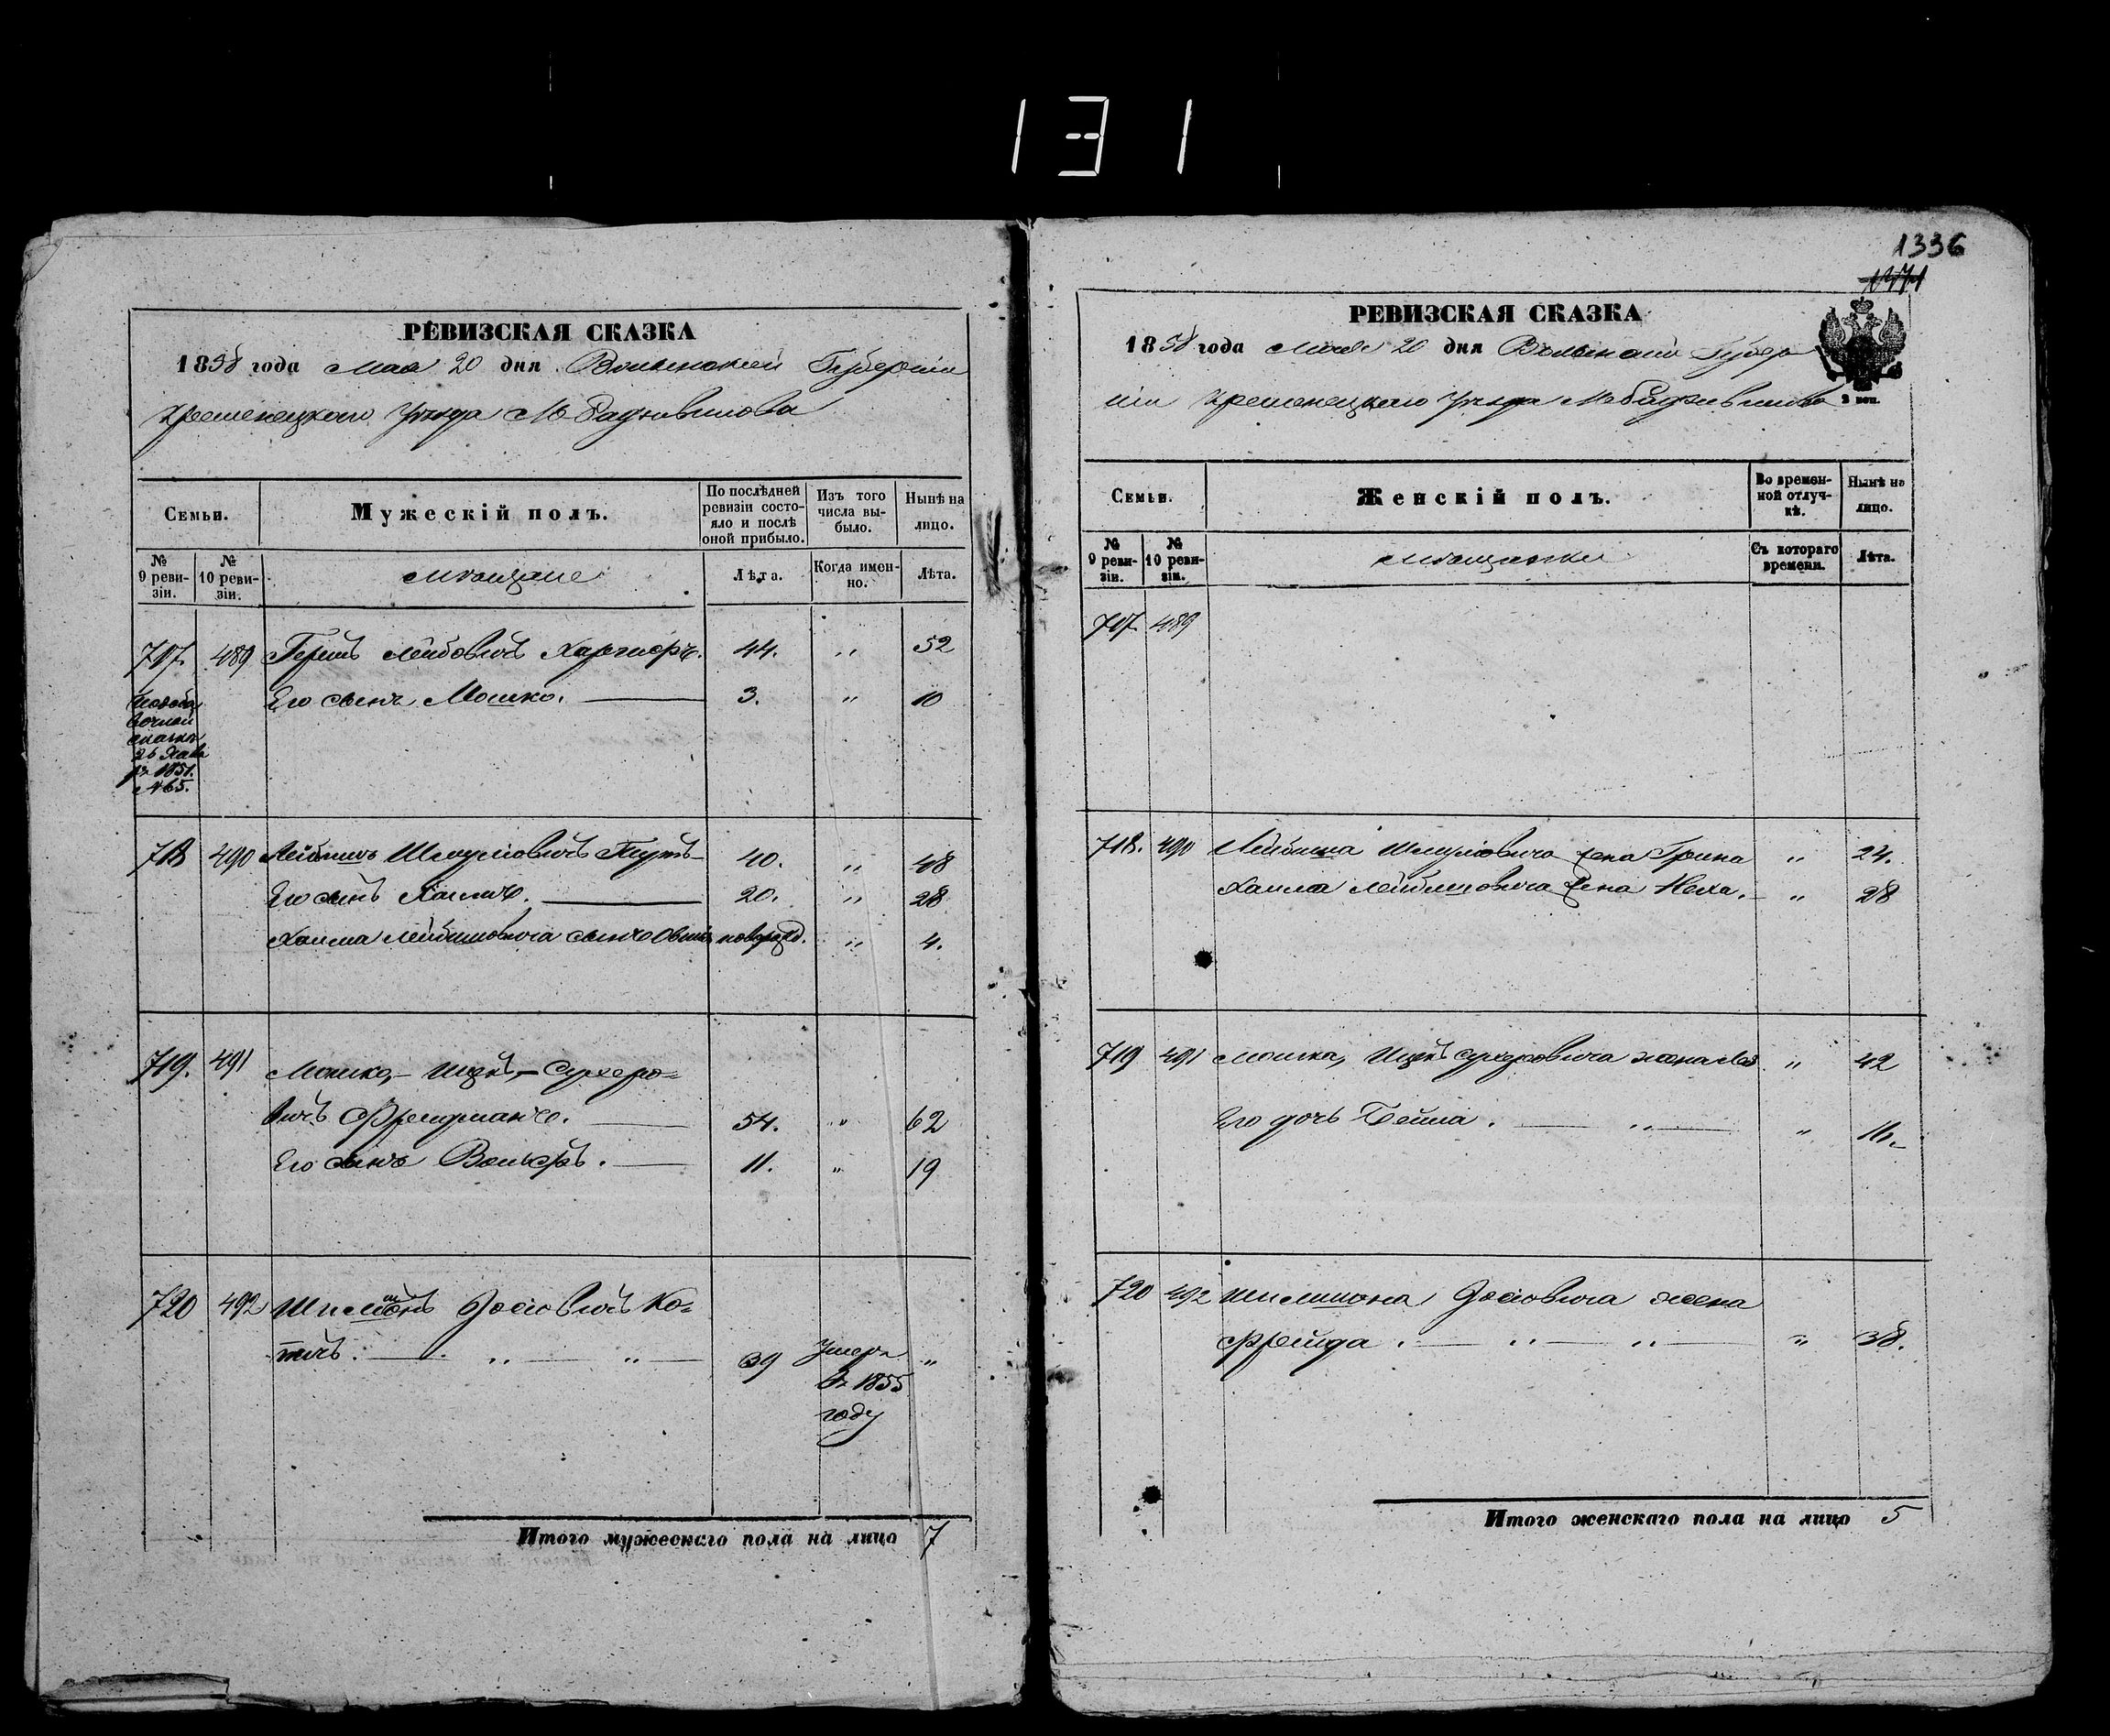 131
РЕВИЗСКАЯ СКАЗКА
1858 года Мая 20 дня Волынской Губерніи
Кременецкаго Уѣзда М Радзивилова
Семьи.
Мужескій полъ.
По послѣдней ревизіи состояло и послѣ оной прибыло.
Изъ того числа выбыло.
Нынѣ на лицо.
№ 9 ревизіи.
№ 10 ревизіи.
Мѣщане
Лѣта.
Когда именно.
Лѣта.
717. 489 Гершъ Лейбовичъ 44. „ 52
Его сынъ Мошко. 3. „ 10
сказкѣ
26
1851.
№ 65.
718 490 Лейбишъ Шмулiовичъ 40. „ 48
Его сынъ Хаимъ. 20. „ 28
Хаима Лейбишовича сынъ новорожд. „ 4.
719. 491 Мошко,- Ицкъ,-
вичъ Фрейдманъ. 54. „ 62
Его сынъ Вольфъ. 11. „ 19
720 492 Шимшонъ Іосіовичъ Ко=
39 Умеръ „
въ 1855
году
Итого мужескаго пола на лицо 7
1336
РЕВИЗСКАЯ СКАЗКА
1858 года Мая 20 дня Волынской Губер
ніи Кременецкаго Уѣзда М Радзивилова
2 коп.
Семьи.
Женскій полъ.
Во временной отлучкѣ.
Нынѣ на лицо.
№ 9 ревизіи.
№ 10 ревизіи.
Мѣщанки
Съ котораго времени.
Лѣта.
717 489
718. 490 Лейбиша Шмулiовича жена „ 24.
Хаима Лейбишовича жена Неха. „ 28
719 491 Мошка, Ицка жена „ 42
Его дочь Бейла. „ „ 16.
720 492 Шимшона Іосіовича жена
Фрейда. „ „ „ 38.
Итого женскаго пола на лицо 5